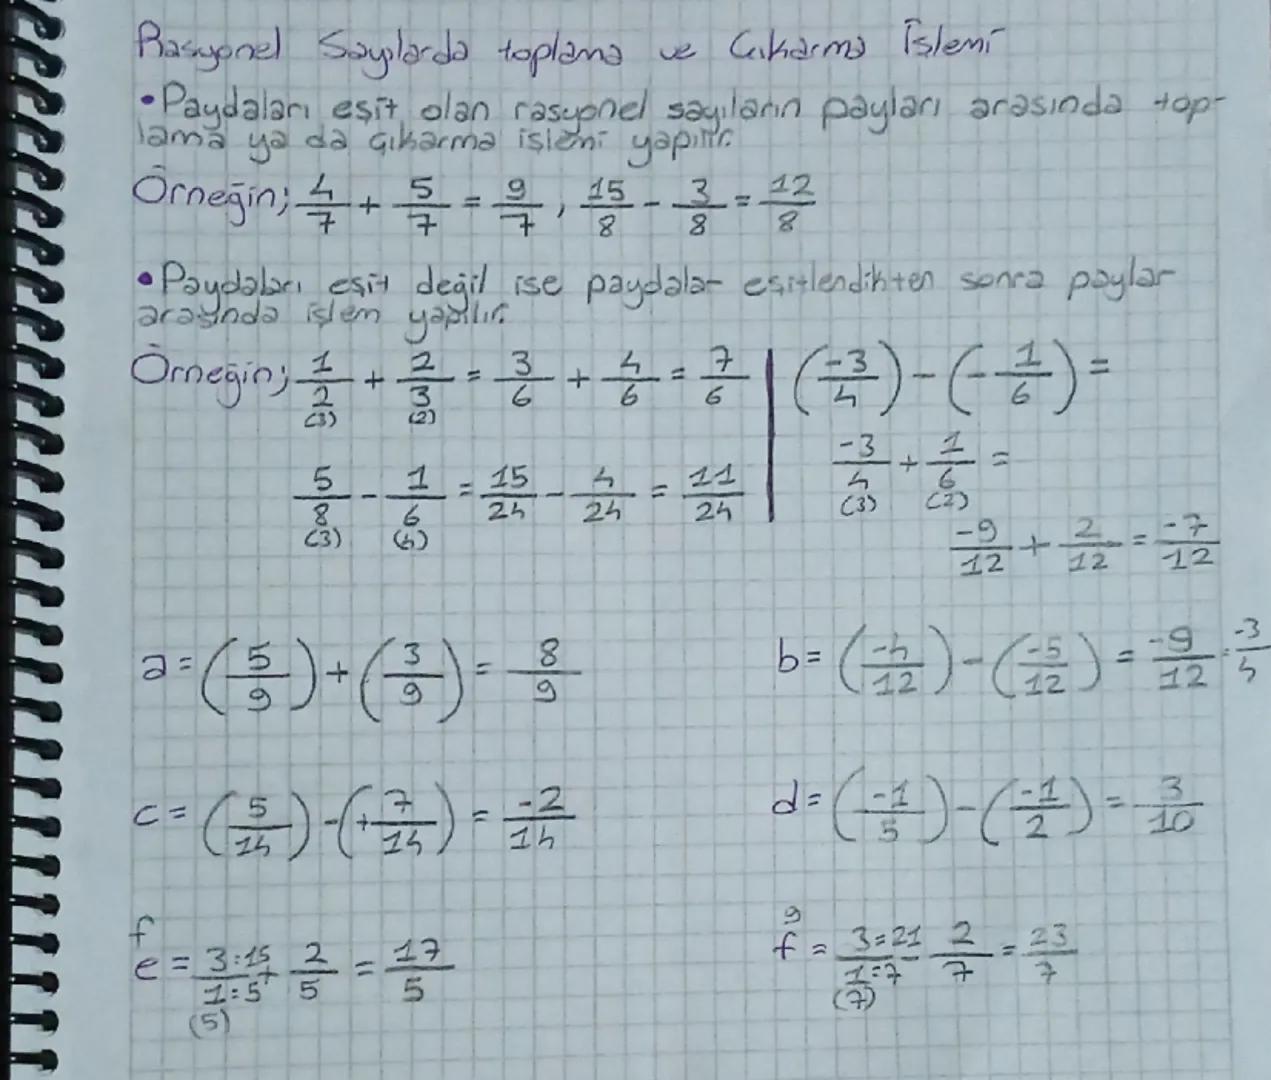 Rasyonel Sayılarda toplama ve Çıkarma İşlemi
• Paydaları eşit olan rasyonel sayıların payları arasında top-
lama ya da çıkarma işlemi yapılır.
Örneğin; 4/7 + 5/7 = 9/7 , 15/8 - 3/8 = 12/8
• Paydaları eşit değil ise paydalar eşitlendikten sonra paylar
arasında işlem yapılır.
Örneğin; 1/2 (3) + 2/3 (2) = 3/6 + 4/6 = 7/6
5/8 (3) - 1/6 (4) = 15/24 - 4/24 = 11/24
(-3/4) - (-1/6) =
-3/4 (3) + 1/6 (2) =
-9/12 + 2/12 = -7/12
a = (5/9) + (3/9) = 8/9
b = (-4/12) - (-5/12) = -9/12 = -3/4
c = (5/14) - (+7/14) = -2/14
d = (-1/5) - (-1/2) = 3/10
f
e = 3=15/1=5 (5) + 2/5 = 17/5
g
f = 3=21/1=7 (7) - 2/7 = 23/7